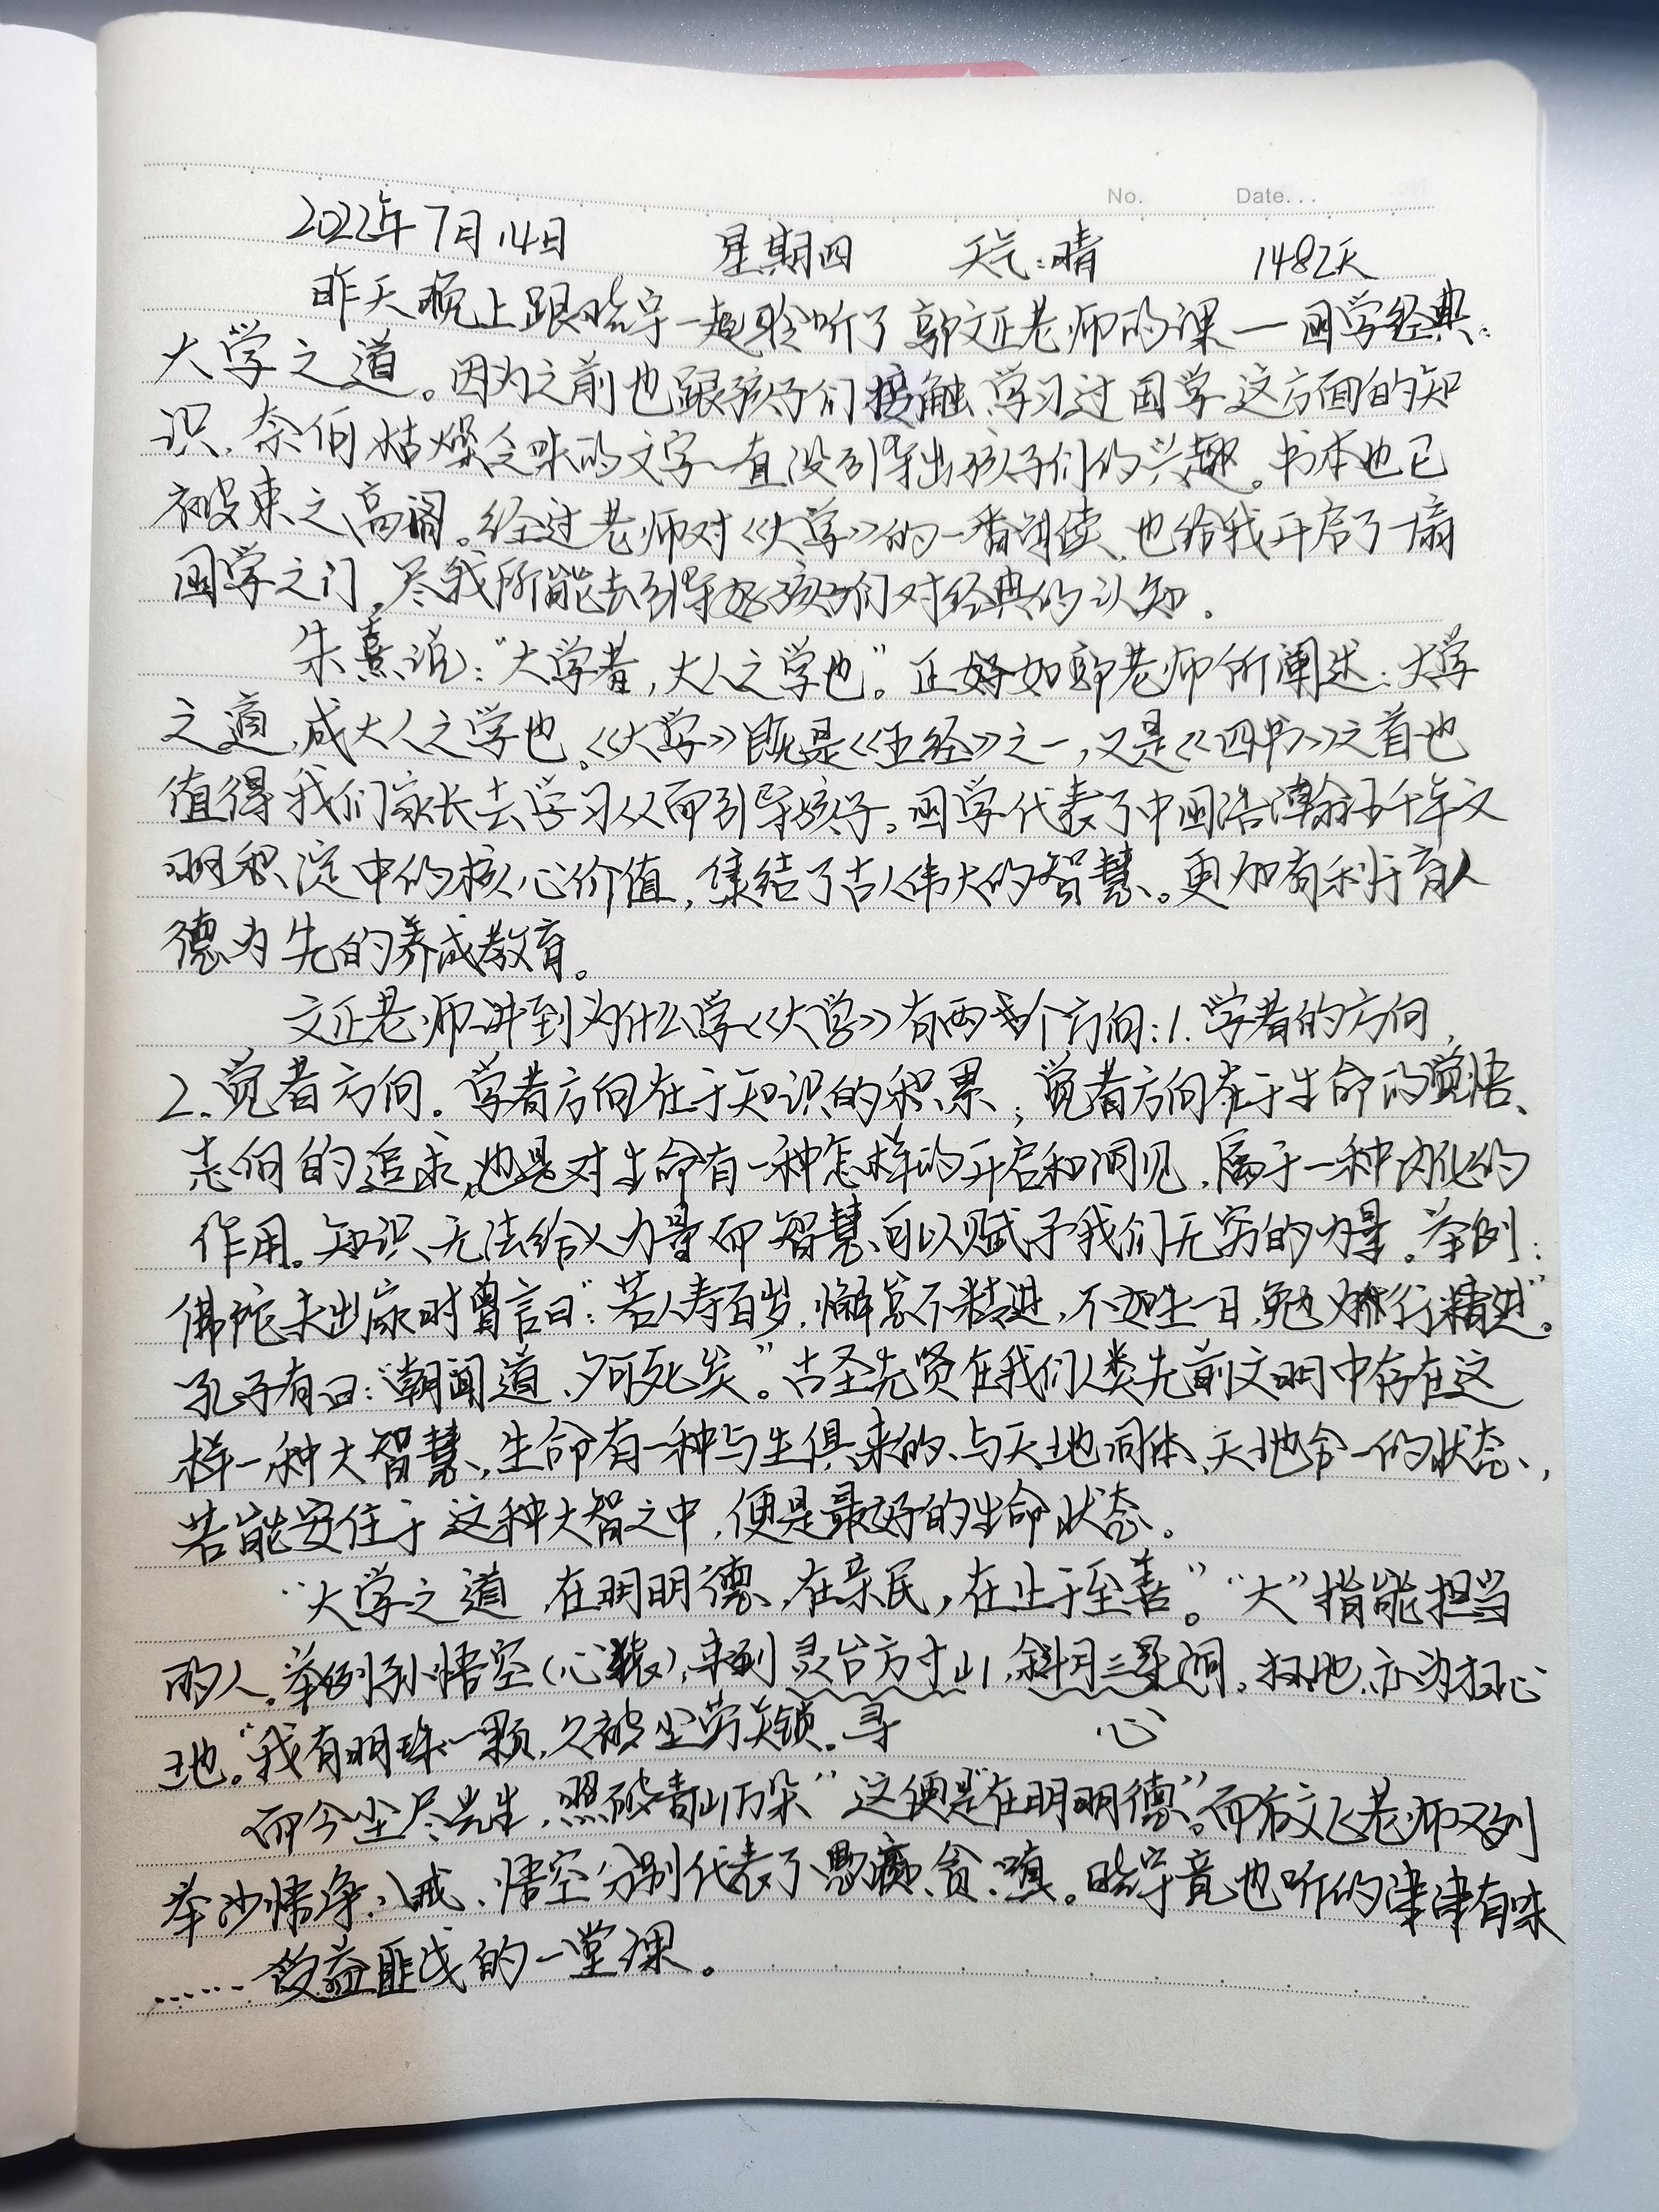 No. Date...
2022年7月14日 星期四 天气:晴 1482天
昨天晚上跟晓宇一起聆听了郭文正老师的课一国学经典:
大学之道。因为之前也跟孩子们接触、学习过国学这方面的知
识,奈何枯燥乏味的文字一直没引导出孩子们的兴趣。书本也已
被束之高阁。经过老师对《大学》的一番解读,也给我开启了一扇
国学之门,尽我所能去引导好孩子们对经典的认知。
朱熹说:“大学者,大人之学也”。正好如郭老师所阐述:大学
之道,成大人之学也。《大学》既是《五经》之一,又是《四书》之首也
值得我们家长去学习从而引导孩子。国学代表了中国浩瀚五千年文
明积淀中的核心价值,集结了古人伟大的智慧。更加有利于育人
德为先的养成教育。
文正老师讲到为什么学《大学》有两个方向:1.学者的方向,
2.觉者方向。学者方向在于知识的积累;觉者方向在于生命的觉悟、
志向的追求,也是对生命有一种怎样的开启和洞见,属于一种内化的
作用。知识无法给人力量而智慧可以赋予我们无穷的力量。举例:
佛陀未出家时曾言曰:“若人寿百岁,懈怠不精进,不如生一日,勉力行精进”。
孔子有曰:“朝闻道,夕可死矣”。古圣先贤在我们人类先前文明中存在这
样一种大智慧,生命有一种与生俱来的、与天地同体、天地合一的状态,
若能安住于这种大智之中,便是最好的生命状态。
“大学之道,在明明德,在亲民,在止于至善”。“大”指能担当
的人。举例孙悟空(心猿),来到灵台方寸山,斜月三星洞。扫地,亦为扫心
地。“我有明珠一颗,久被尘劳关锁。寻 心
而今尘尽光生,照破青山万朵”这便是“在明明德”。而后文正老师又列
举沙悟净、八戒、悟空分别代表了愚痴、贪、嗔。晓宇竟也听的津津有味
……受益匪浅的一堂课。